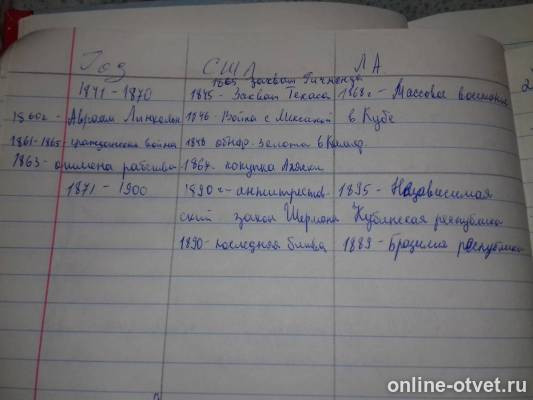 Год США ЛА
1865 захват Ричмонда
1841-1870 1845- Захват Техаса 1868г- Массовое восстание
1860г- Авраам Линкольн 1846- Война с Мексикой в Кубе
1861-1865- гражданская война 1848 обнар. золота в Калиф.
1863- отмена рабства 1867- покупка Аляски
1871-1900 1890г- антитрестов- 1895- Независимая
ский закон Шермана Кубинская республика
1890- последняя битва 1889- Бразилия республика
2
online-otvet.ru